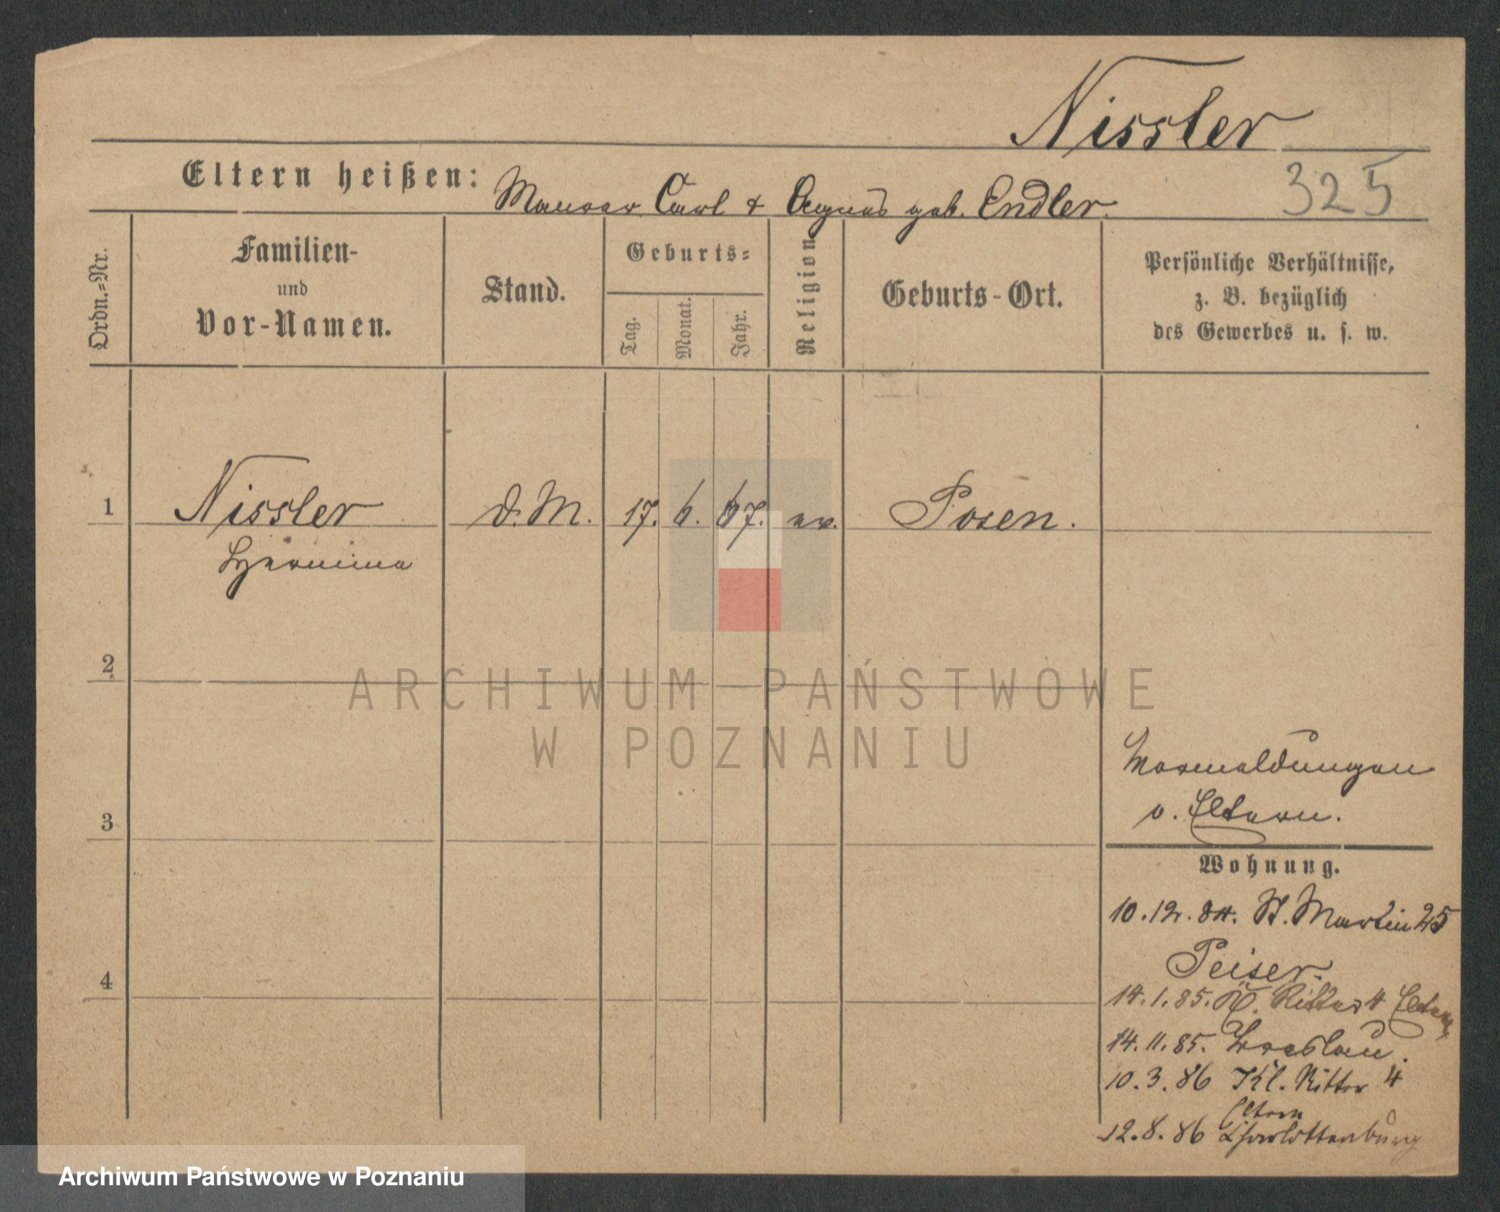 Nissler
325
Eltern heißen: Maurer Carl & Agnes geb. Endler.
Ordn.=Nr.
Familien-
und
Vor-Namen.
Stand.
Geburts=
Tag.
Monat.
Jahr.
Religion
Geburts-Ort.
Persönliche Verhältnisse,
z. B. bezüglich
des Gewerbes u. s. w.
1 Nissler d. M. 17. 6. 67. ev. Posen.
Hermine
2
ARCHIWUM PAŃSTWOWE
W POZNANIU
3
4
v. Eltern.
Wohnung.
10.12.84. St. Martin 25
Peiser.
14.1.85. Kl. Ritter 4 Eltern
14.11.85. Breslau.
10.3.86 Kl. Ritter 4
Eltern
12.8.86 Charlottenburg
Archiwum Państwowe w Poznaniu